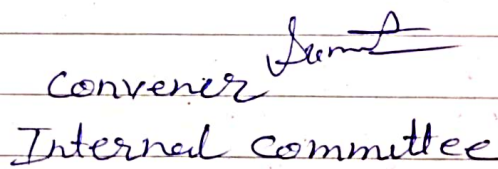 Convener
Internal Committee